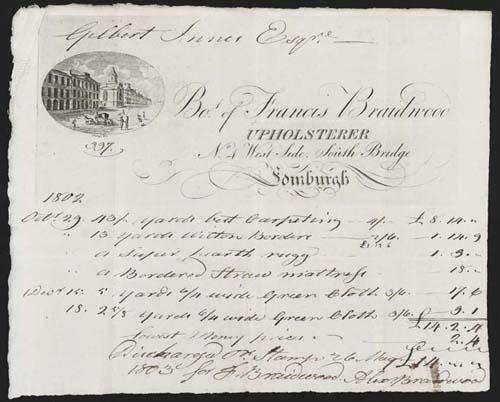 Gilbert Innes Esqre
Bot. of Francis Braidwood
UPHOLSTERER
No. 4 West Side, South Bridge
Edinburgh
397.
1802
Octr. 29. 43½ yards best Carpeting 4/- £8.14.
" 13 yards Wilton Border 2/6 1.14.9
£1.12.6
" a Super hearth rugg 1.3.-
" a Bordered Straw mattress 18.-
Decr. 15. 5 yards 6/4 wide Green Cloth 3/6. 17.6
18. 2⅝ yards 6/4 wide Green Cloth 3/6. 9.1
£14.2.4
lowest money price 2.4
£14
Discharged on Stamp 26 May
1803 for F. Braidwood Alexr Braidwood